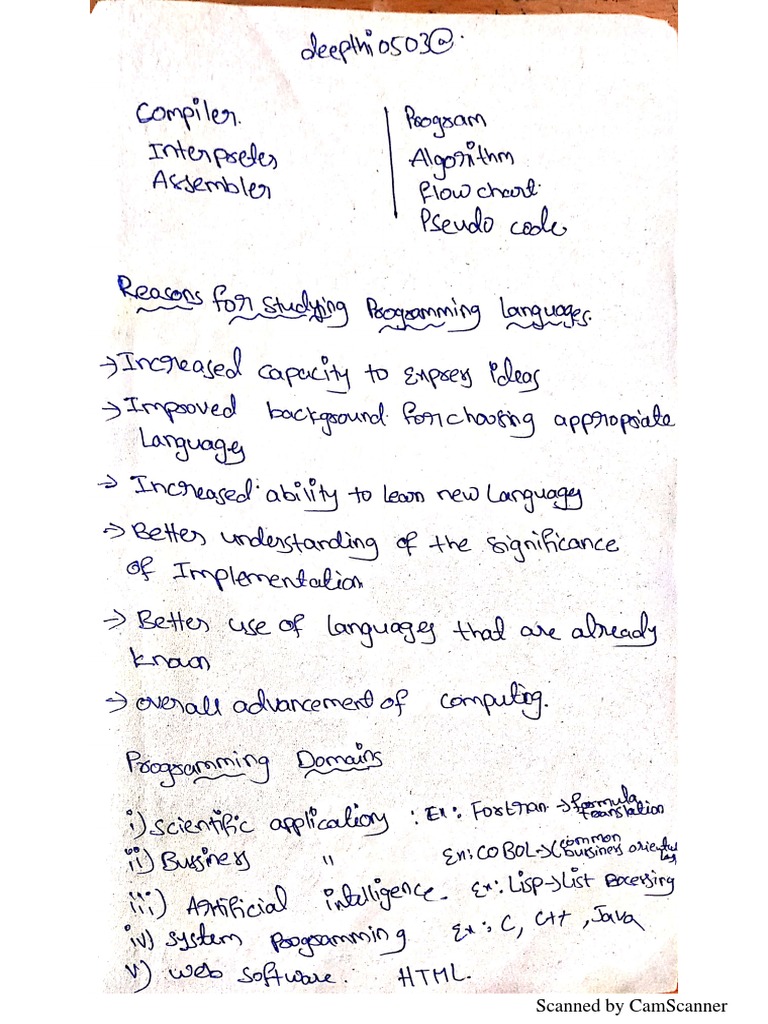 deepthi0503@.
Compiler.
Interpreter
Assembler
Program
Algorithm
Flow chart.
Pseudo code
Reasons for studying Programming languages.
→ Increased capacity to express ideas
→ Improved background for choosing appropriate
languages
→ Increased ability to learn new languages
→ Better understanding of the significance
of Implementation
→ Better use of languages that are already
known
→ overall advancement of computing.
Programming Domains
i) scientific application : Ex: Fortran → formula translation
ii) Bussiness " Ex: COBOL → common bussiness oriented
iii) Artificial intelligence. Ex: Lisp → List Processing
iv) System Programming Ex: C, C++, Java
v) web software. HTML.
Scanned by CamScanner